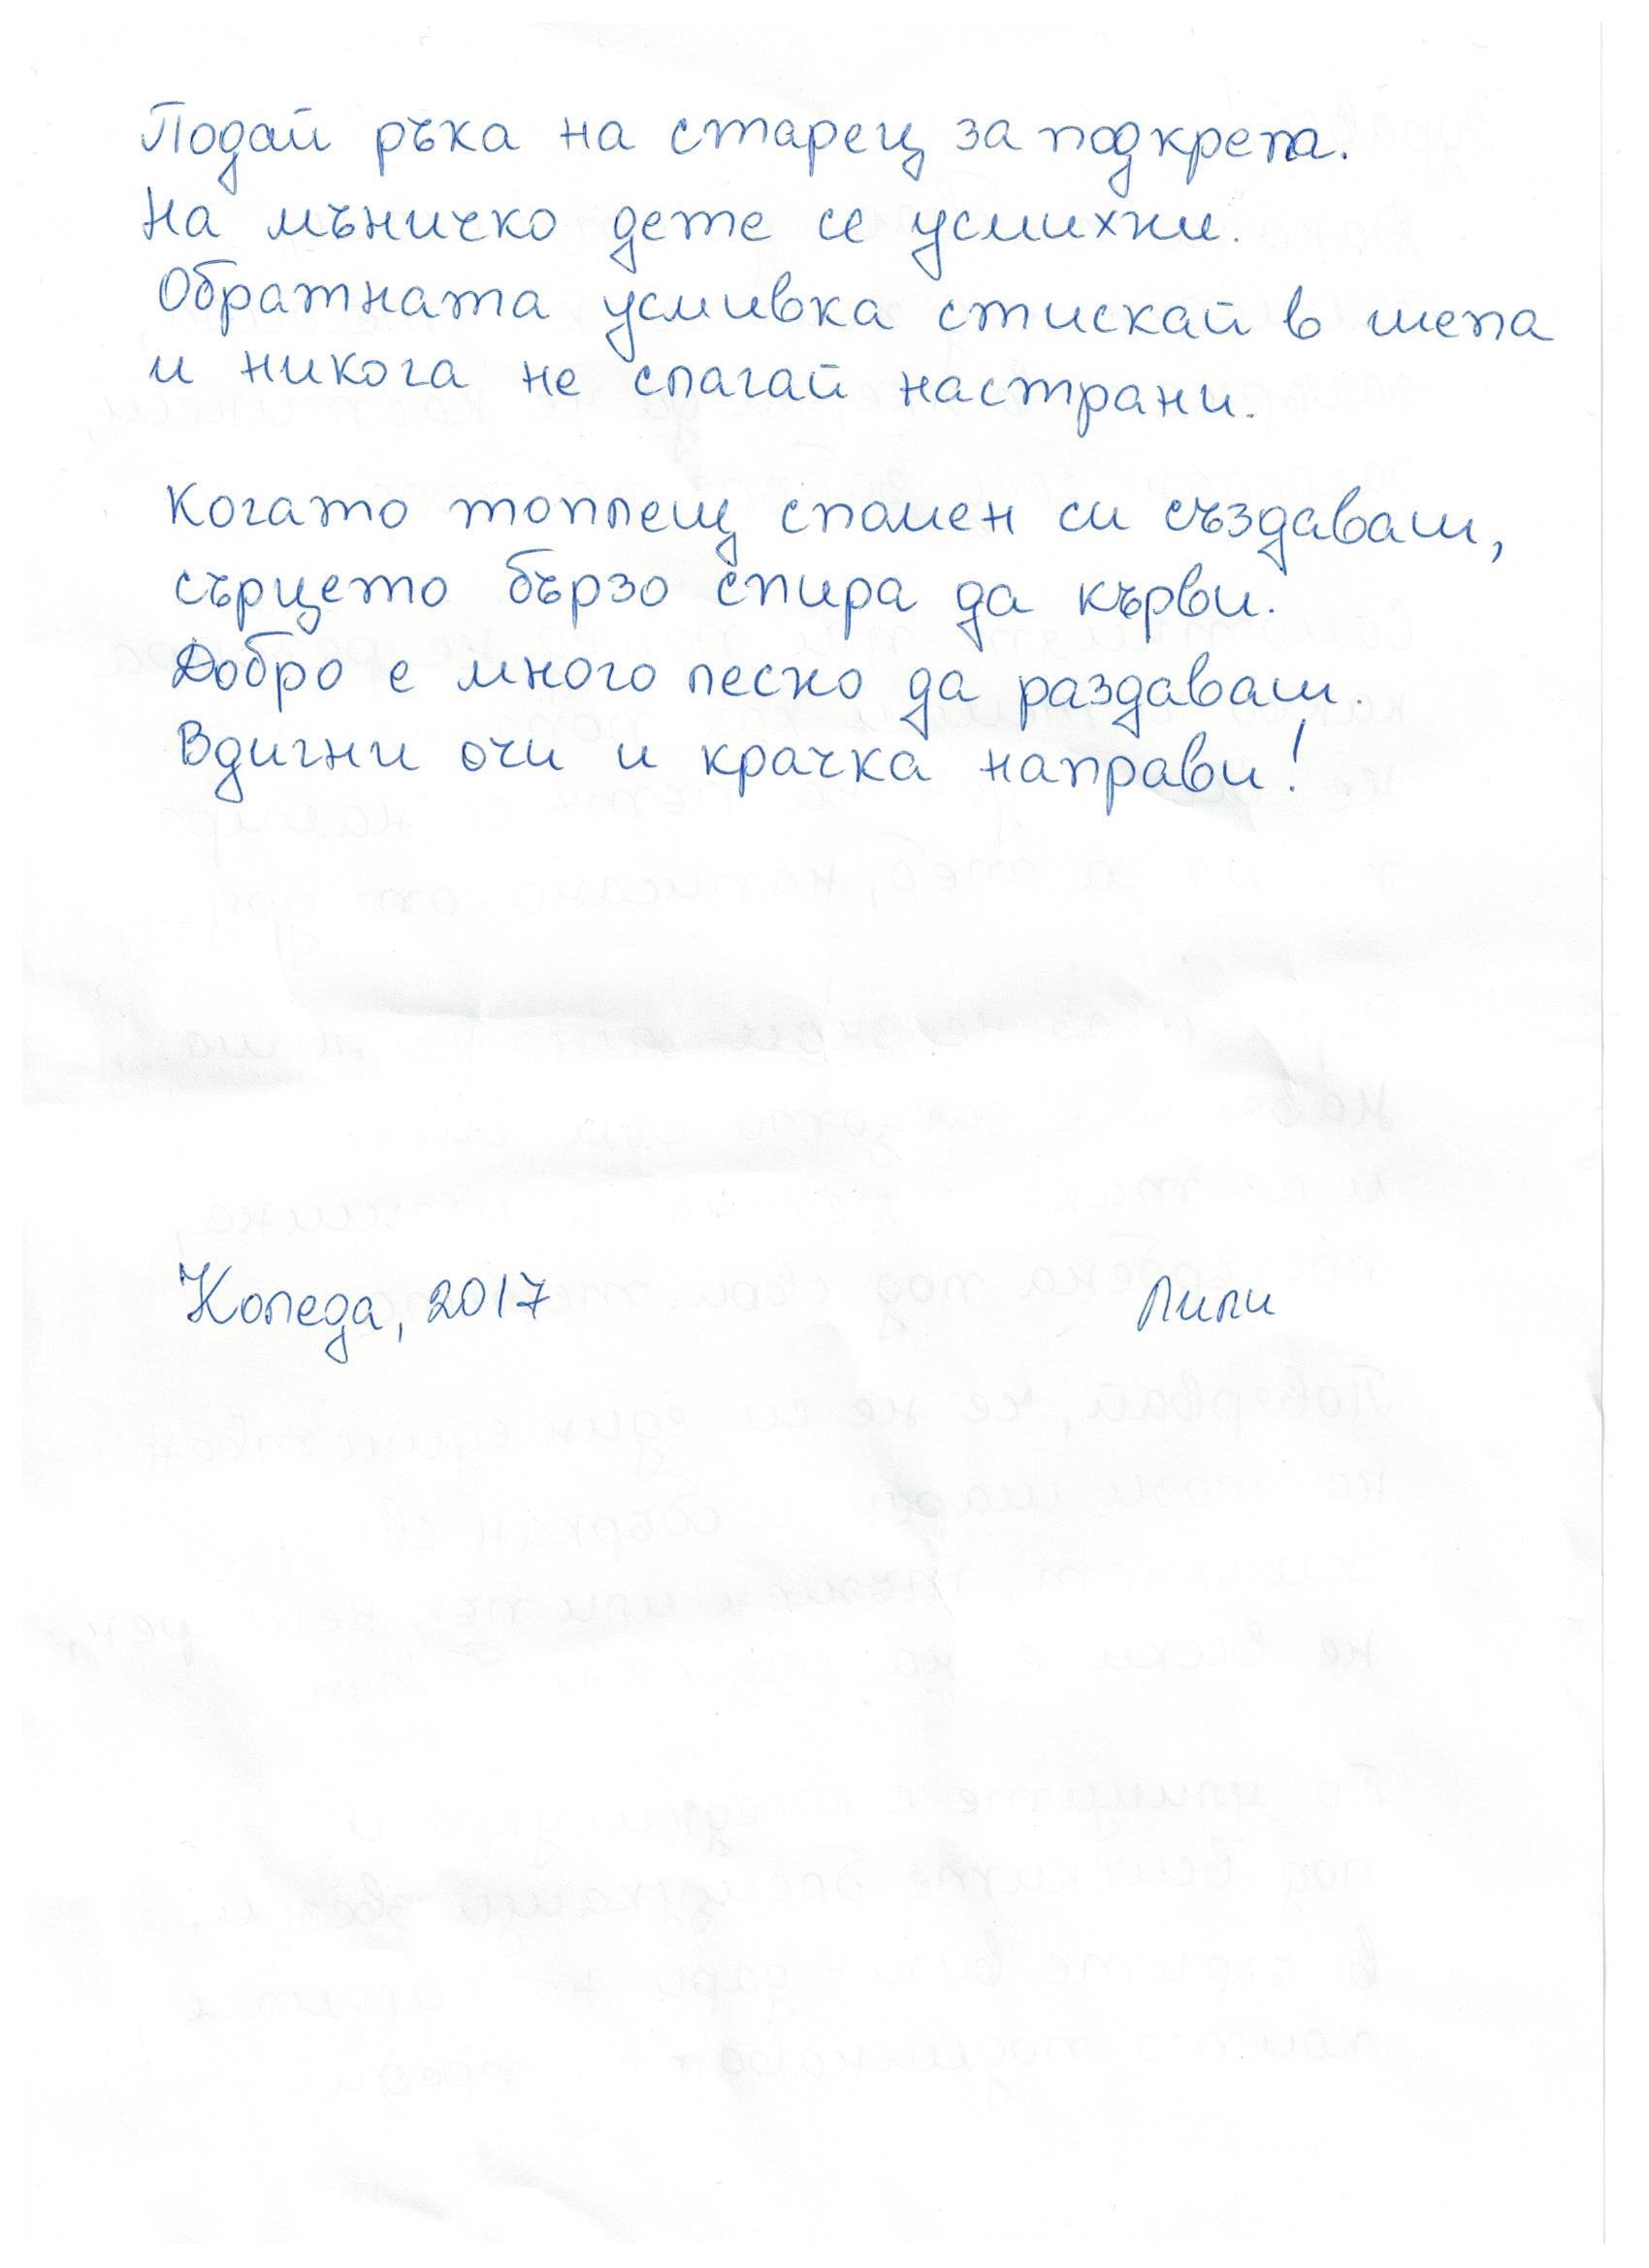 Подай ръка на старец за подкрепа.
На мъничко дете се усмихни.
Обратната усмивка стискай в шепа
и никога не слагай настрани.
Когато топлещ спомен си създаваш,
сърцето бързо спира да кърви.
Добро е много лесно да раздаваш.
Вдигни очи и крачка направи!
Коледа, 2017 Лили